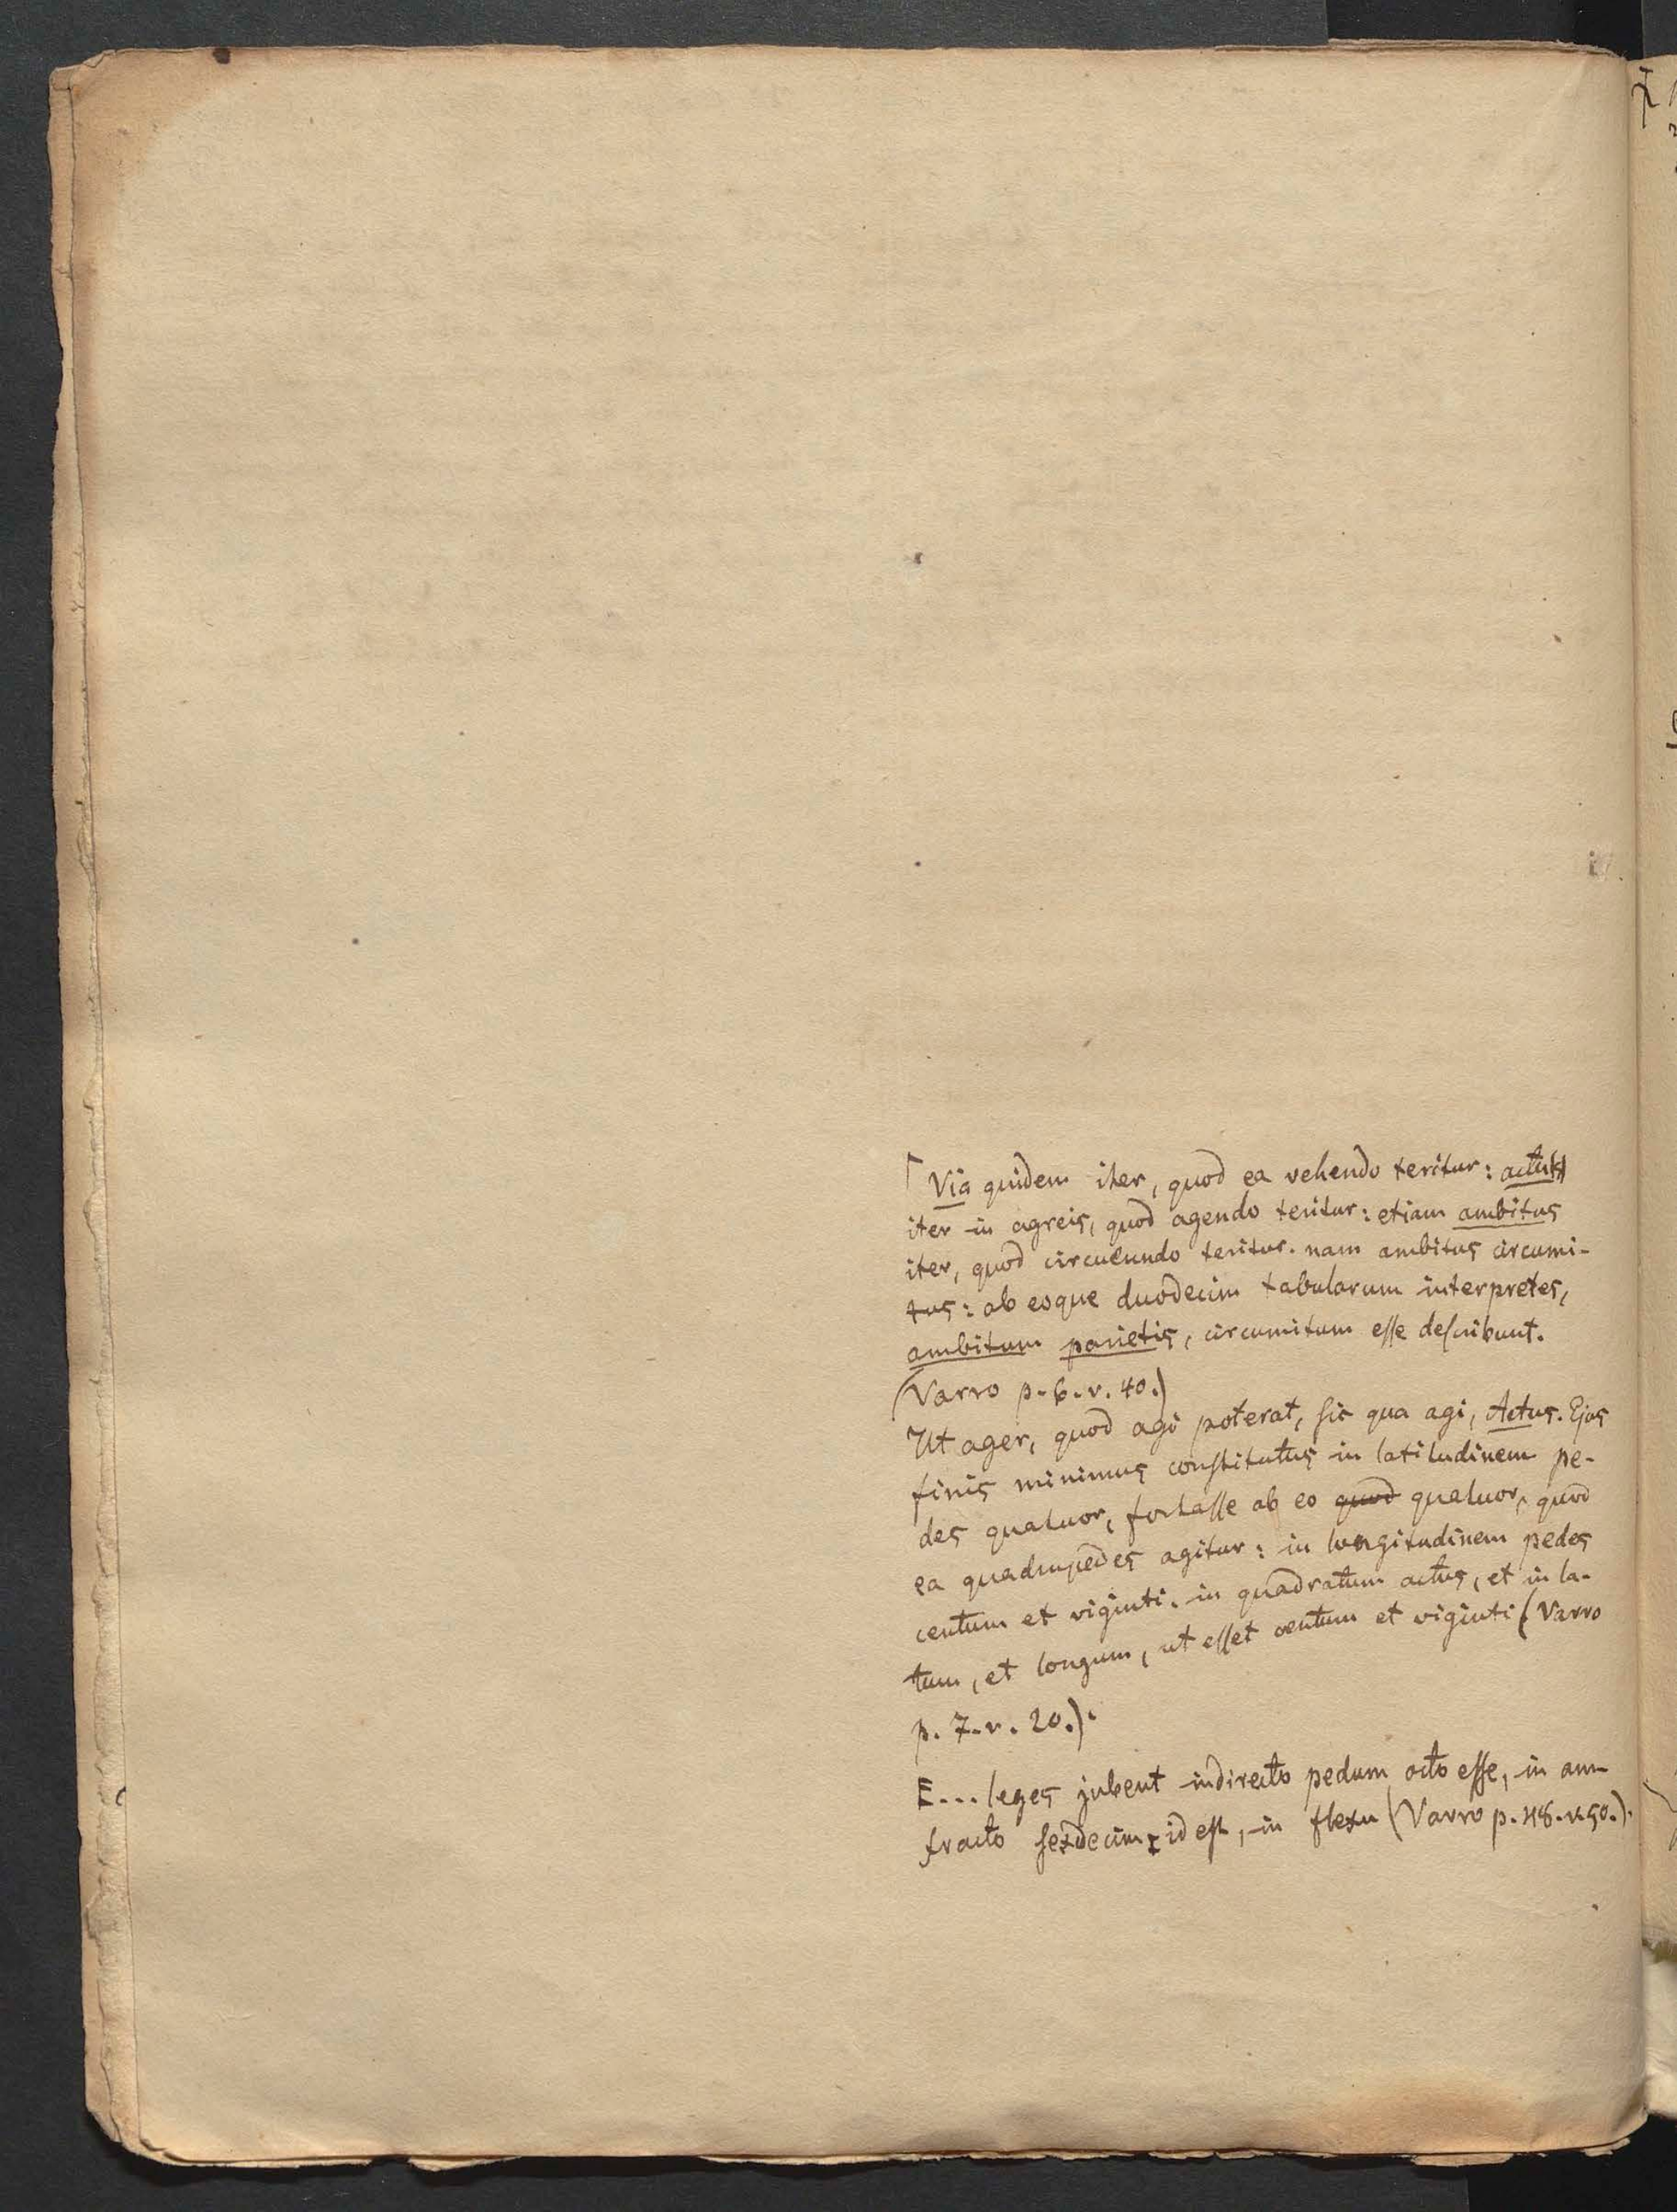 Via quidem iter, quod ea vehendo teritur: actus
iter in agreis, quod agendo teritur: etiam ambitus
iter, quod circueundo teritur. nam ambitus circumi-
tus: ab eoque duodecim tabularum interpretes,
ambitum parietis, circumitum esse describunt.
(Varro p. 6. v. 40.)
Ut ager, quod agi poterat, sic qua agi, Actus. Ejus
finis minimus constitutus in latitudinem pe-
des quatuor, fortasse ab eo quod quatuor, quod
ea quadrupedes agitur: in longitudinem pedes
centum et viginti. in quadratum actus, et in la-
tum, et longum, ut esset centum et viginti (Varro
p. 7. v. 20.).
E... leges jubent in directo pedum octo esse, in an-
fracto sexdecim, id est, in flexu (Varro p. 48. v. 50.).